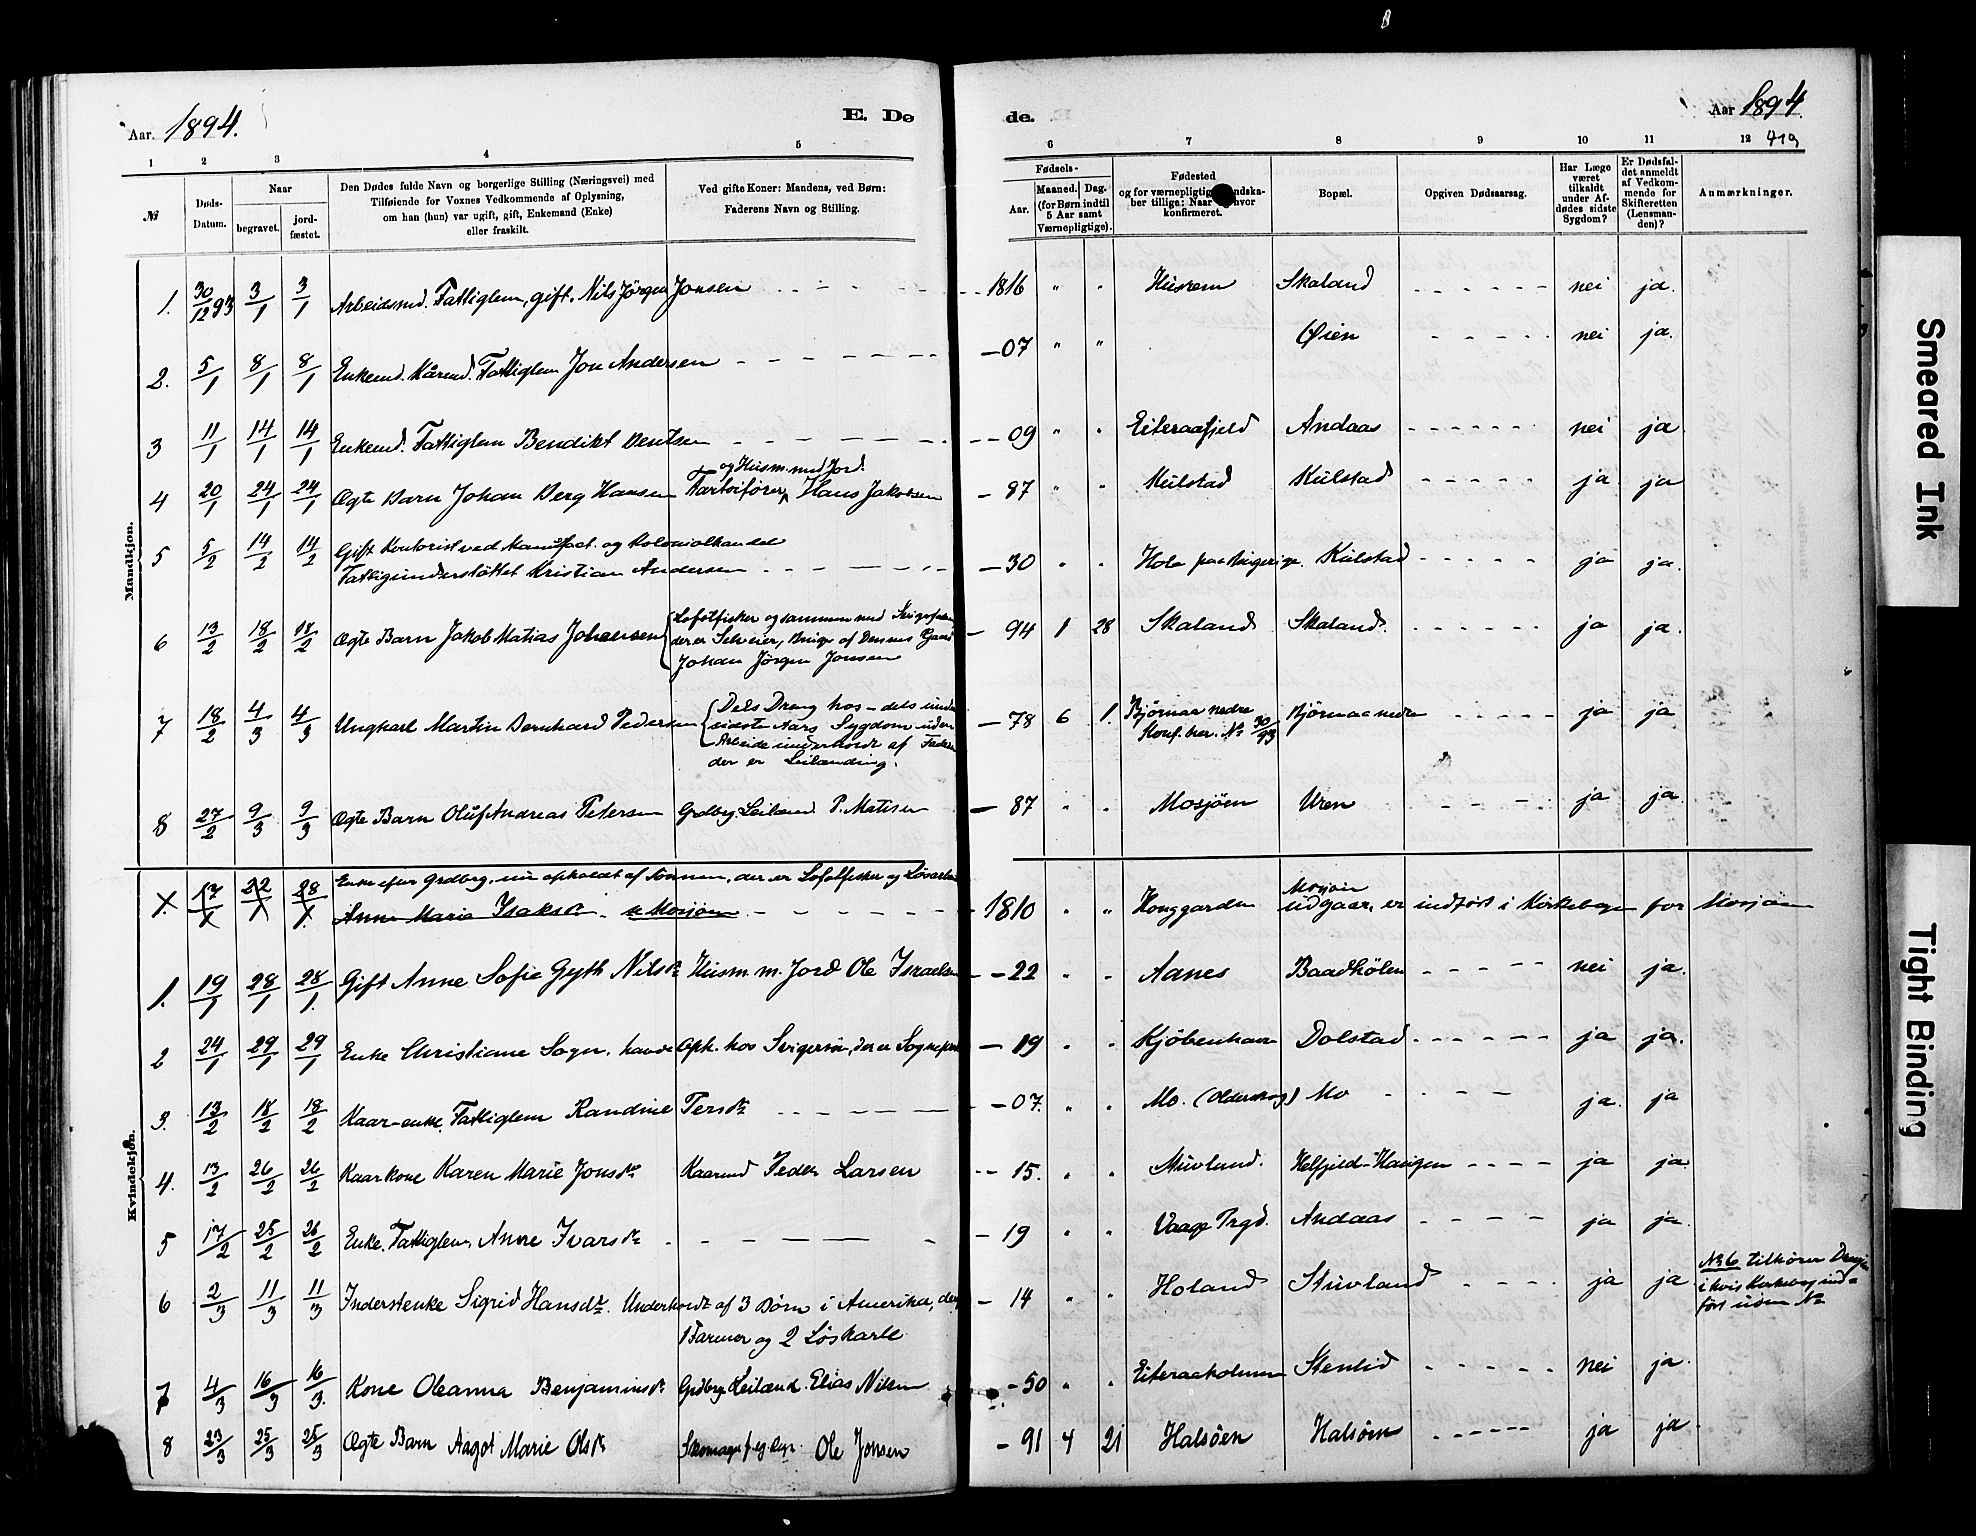 Aar. 1894.
E. Dø
de.
Aar 1894.
419
1 2 3 4 5 6 7 8 9 10 11 12
№
Døds-Datum.
Naar
begravet.
jord-fæstet.
Den Dødes fulde Navn og borgerlige Stilling (Næringsvei) med
Tilføiende for Voxnes Vedkommende af Oplysning,
om han (hun) var ugift, gift, Enkemand (Enke)
eller fraskilt.
Ved gifte Koner: Mandens, ved Børn:
Faderens Navn og Stilling.
Fødsels-
Aar.
Maaned. Dag.
(for Børn indtil
5 Aar samt
Værnepligtige).
Fødested
og for værnepligtige
ber tillige: Naar hvor
konfirmeret.
Bopæl.
Opgiven Dødsaarsag.
Har Læge
været
tilkaldt
under Af-
dødes sidste
Sygdom?
Er Dødsfal-
det anmeldt
af Vedkom-
mende for
Skifteretten
(Lensman-
den)?
Anmærkninger.
Mandkjøn.
1. 30/12 93 3/1 3/1 Arbeidsmd. Fattiglem, gift. Nils Jörgen Jonsen 1816 " " Husrem Skaland nei ja.
2. 5/1 8/1 8/1 Enkemd. Kårmd. Fattiglem Jon Andersen - 07 " " Øien nei ja.
3 11/1 14/1 14/1 Enkemd. Fattiglem Bendikt Bentsen - 09 " " Eiteraafjeld Andaas nei ja
og Husm. med Jord.
4 20/1 24/1 24/1 Ægte Barn Johan Berg Hansen Fartøifører Hans Jakobsen - 87 " " Kulstad Kulstad ja ja
5 5/2 14/2 14/2 Gift Kontorist ved Manufact. og Kolonialhandel
Fattigunderstöttet Kristian Andersen - 30 " " Kulstad ja ja.
6 13/2 18/2 18/2 Ægte Barn Jakob Matias Johansen Lofotfisker og sammen med
der er Selveier, Bruger af Dennes Gaard
Johan Jörgen Jonsen - 94 1 28 Skaland Skaland. ja ja.
7 18/2 4/3 4/3 Ungkarl Martin Bernhard Pedersen Dels Dreng hos - dels under
sidste Aars Sygdom uden
Arbeide underholdt af Fader
der er Leilænding. - 78 6 1. Bjørnaa nedre
Konf. her. № 30/93 Bjørnaa nedre ja ja
8 27/2 9/3 9/3 Ægte Barn Oluf Andreas Petersen Grdbrg. Leilænd P. Matisen - 87 " " Mosjöen Uren ja ja.
Kvindekjøn.
Enke efter Grdbrg. nu opholdt af Sönnen, der er Lofotfisker og
Anne Maria Isaksdr. - 1810 " " Mosjöen
udgaar, er indført i Kirkebogen for Mosjöen
1. 19/1 28/1 28/1. Gift Anne Sofie Gyth Nilsdr. Husm. m. Jord Ole Israelsen - 22 " " Aanes Baadhölen nei ja.
2 24/1 29/1 29/1 Enke Christiane Sogn. havde Oph. hos Svigersön, der er Sogneprest - 19 " " Kjöbenhavn Dolstad ja ja.
3. 13/2 18/2 18/2 Kaar-enke. Fattiglem Randine Persdr. - 07. " " Mo. Mo ja. ja
4. 13/2 26/2 26/2 Kaarkone Karen Marie Jonsdr. Kaarmd Peder Larsen - 15. " " Stuvland. Helfjeld-Haugen ja ja.
5 17/2 25/2 26/2 Enke. Fattiglem, Anne Ivarsdr. - 19 " " Vaage Prgd. Andaas ja ja.
6 2/3 11/3 11/3 Inderstenke Sigrid Hansdr. Underholdt af 3 Börn i Amerika, deraf
1 Farmer og 2 Löskarle. - 14 " " Holand Stuvland ja ja
№ 6 tilhörer
i hvis Kirkebog ind-
fört uden №
7 4/3 16/3 16/3. Kone Oleanna Benjaminsdr. Grdbrg. Leilænd. Elias Nilsen - 50 " " Eiteraaholmen Stenlid nei ja.
8 23/3 25/3 25/3 Ægte Barn Aagot Marie Olsdr. Ole Jonsen - 91 4 21 Halsöen Halsöen ja ja
Smeared Ink
Tight Binding